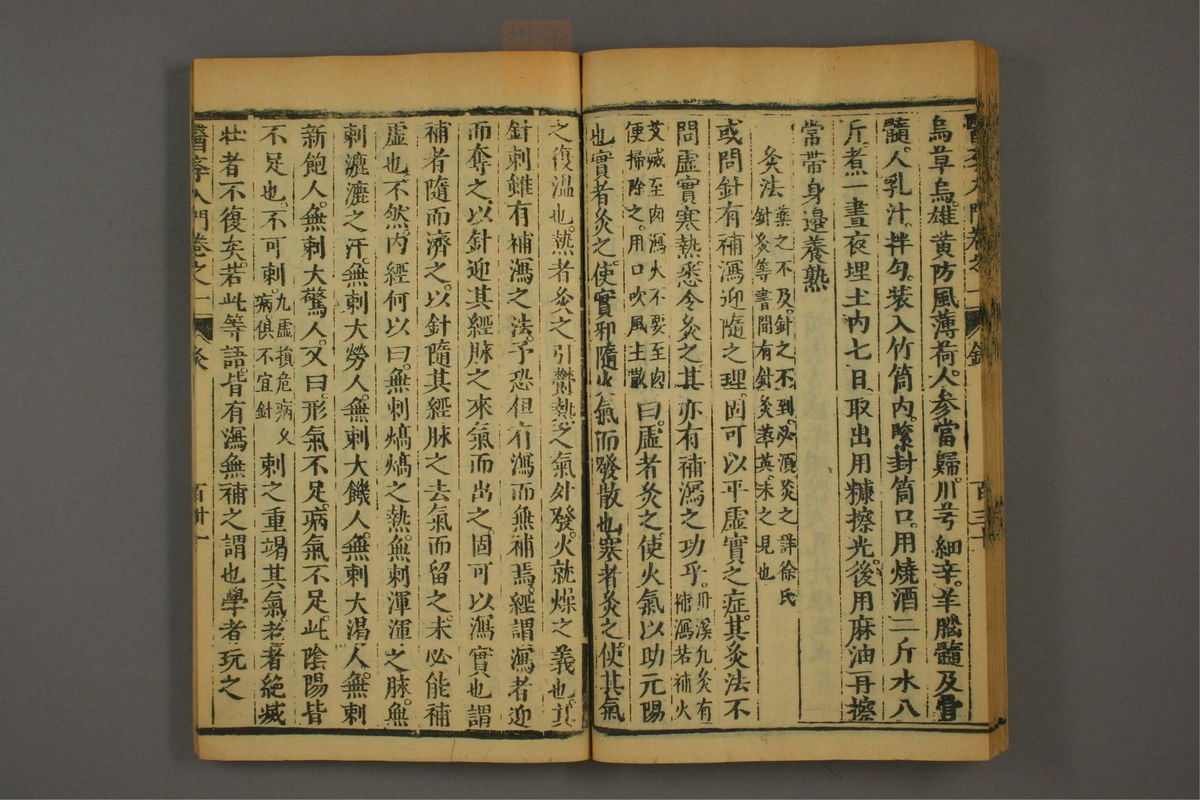 醫學入門卷之一 針 百三十
烏草烏雄黃防風薄荷人參當歸川芎細辛羊腦髓及雪
髓人乳汁拌勻裝入竹筒內緊封筒口用燒酒二斤水八
斤煮一晝夜埋土內七日取出用糠擦光後用麻油再擦
常帶身邊養熟
灸法 藥之不及針之不到必須灸之詳徐氏
針灸等書間有針灸萃英未之見也
或問針有補瀉迎隨之理固可以平虛實之症其灸法不
問虛實寒熱悉令灸之其亦有補瀉之功乎 丹溪凡灸有補瀉若補火
艾滅至肉瀉火不要至肉便掃除之用口吹風主散 曰虛者灸之使火氣以助元陽
也實者灸之使實邪隨火氣而發散也寒者灸之使其氣
之復溫也熱者灸之引鬱熱之氣外發火就燥之義也其
針刺雖有補瀉之法予恐但有瀉而無補焉經謂瀉者迎
而奪之以針迎其經脉之來氣而出之固可以瀉實也謂
補者隨而濟之以針隨其經脉之去氣而留之未必能補
虛也不然內經何以曰無刺熇熇之熱無刺渾渾之脉無
刺漉漉之汗無刺大勞人無刺大饑人無刺大渴人無刺
新飽人無刺大驚人又曰形氣不足病氣不足此陰陽皆
不足也不可刺 凡虛損危病久病俱不宜針 刺之重竭其氣老者絕滅
壯者不復矣若此等語皆有瀉無補之謂也學者玩之
醫學入門卷之一 灸 百卅一